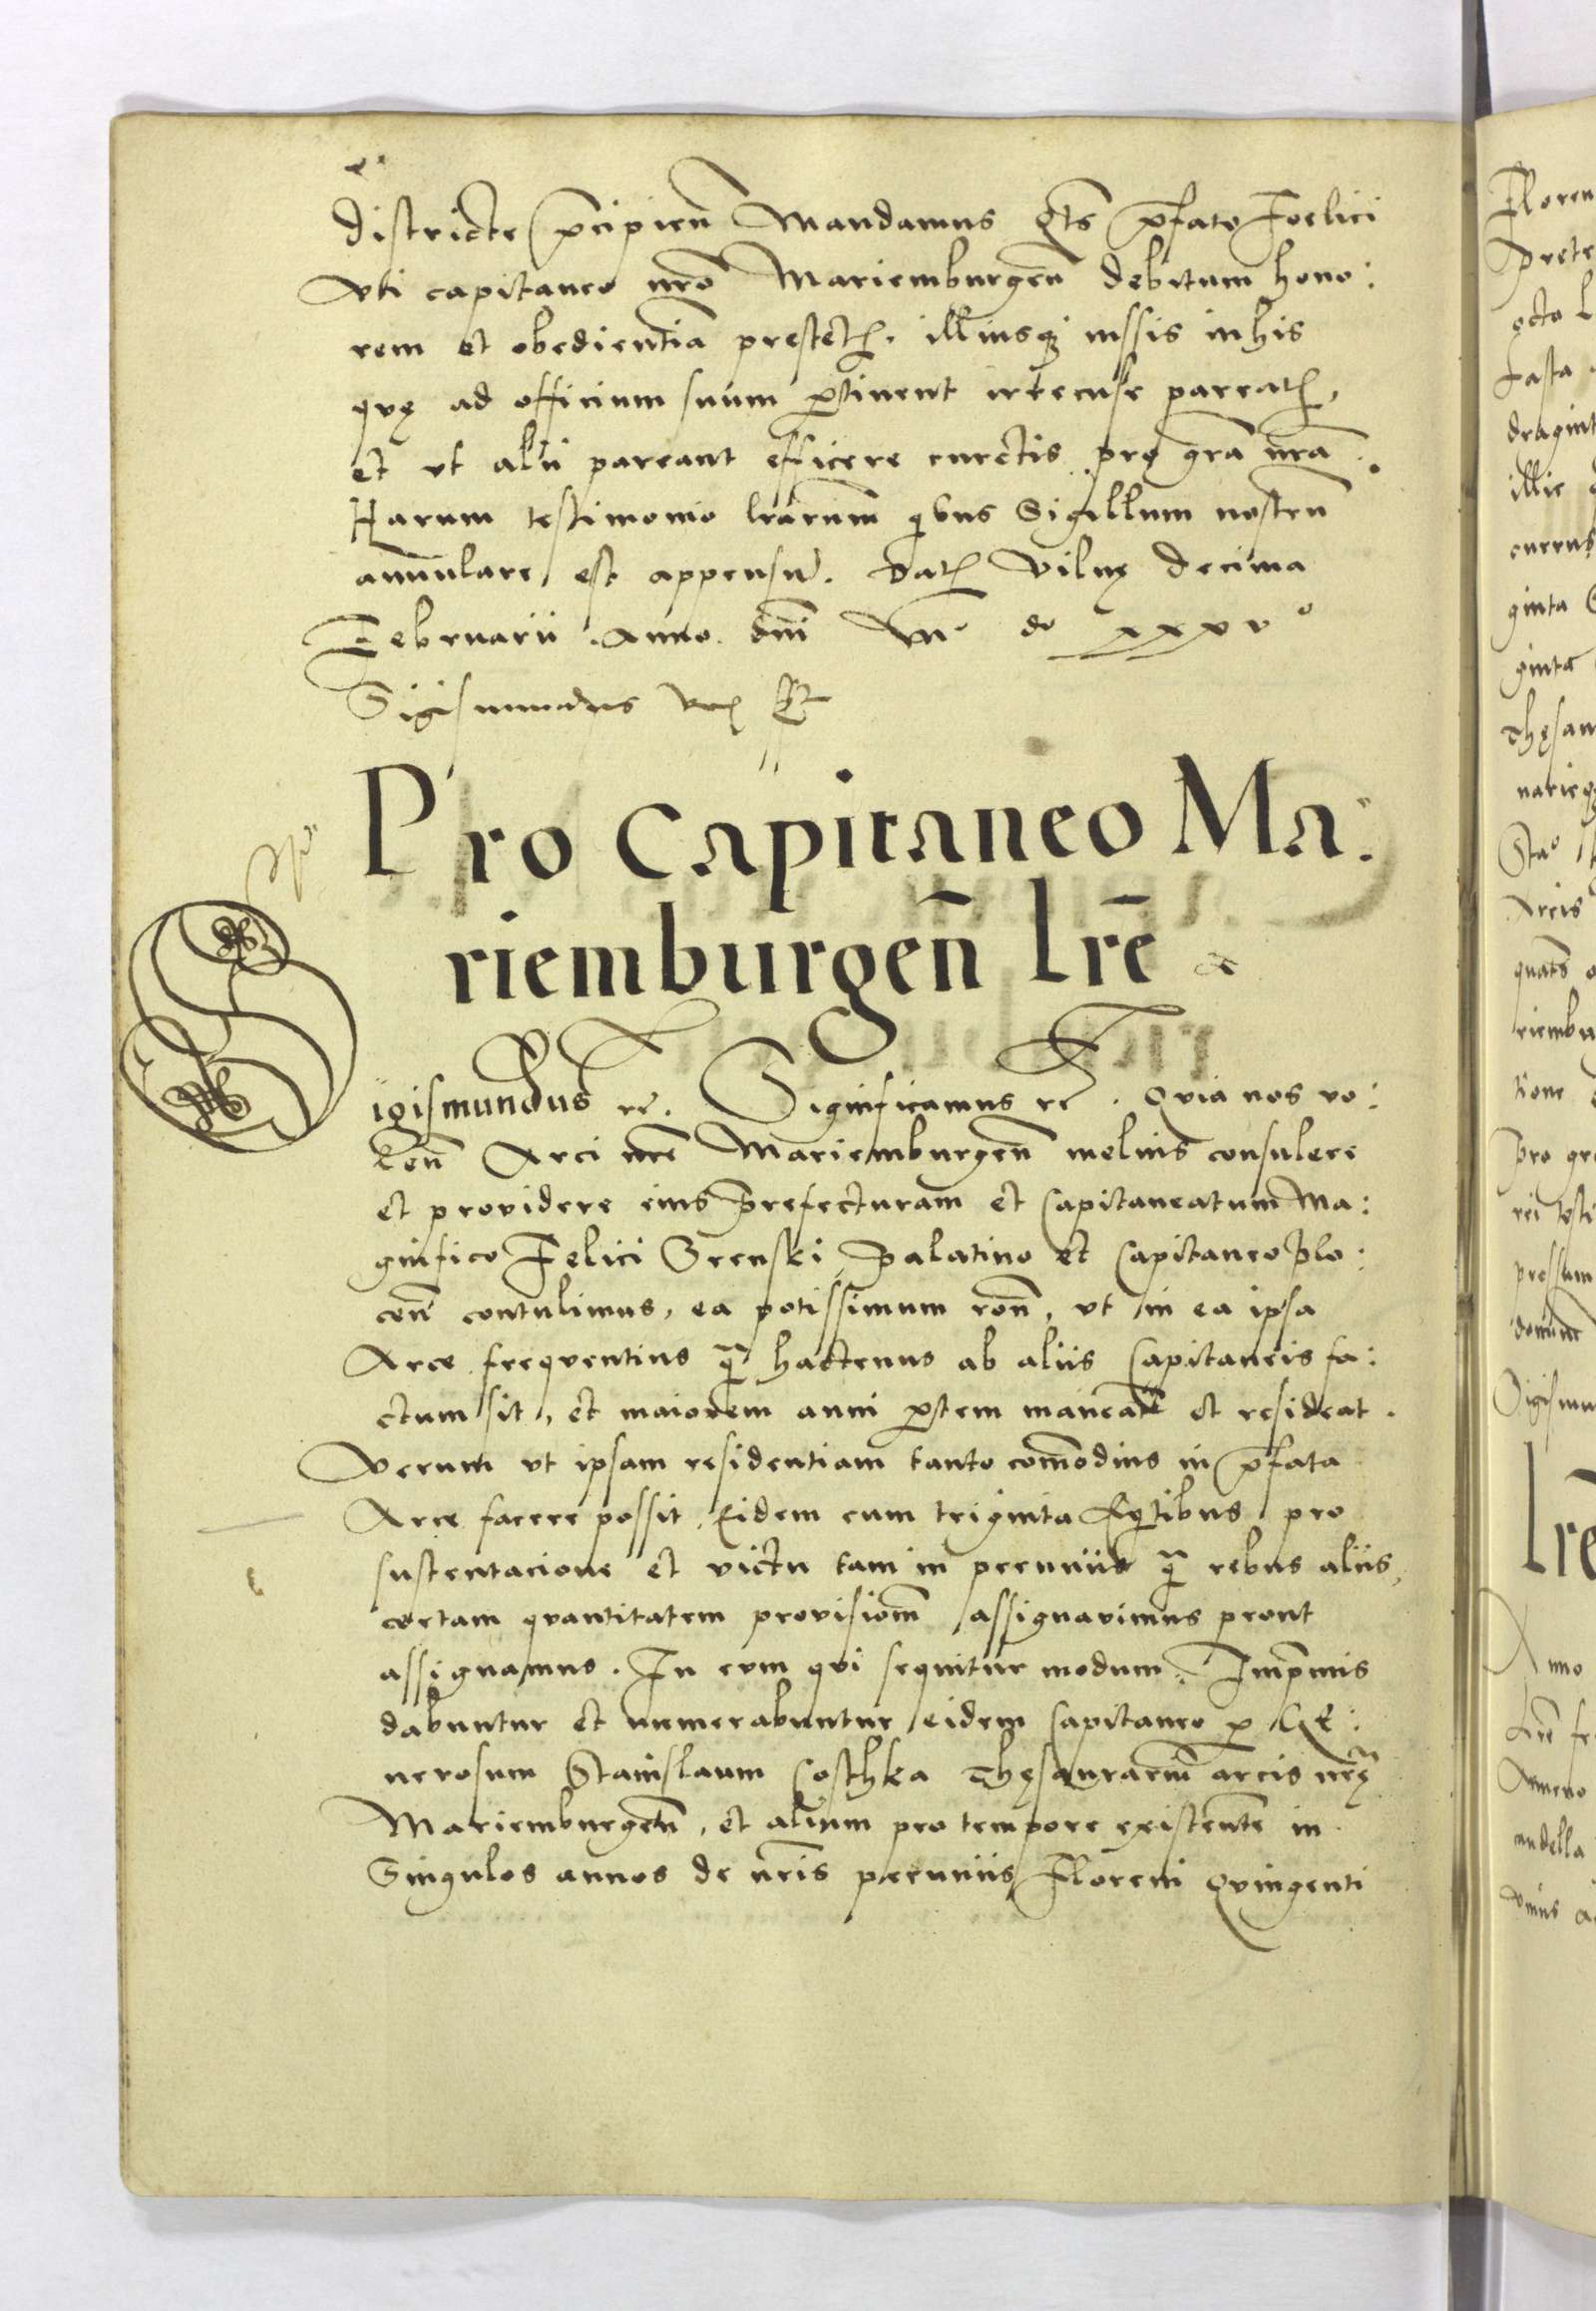 districte p̄cipien̄ Mandamus q̄ts p̄fato Foelici
Vti capitaneo nr̄o Mariemburgen̄ debitum hono:
rem et obedientia prestet. illiusq3 iussis in his
quę ad officium suum pertinent pareat,
et vt alii pareant efficere curetis pro gr̄a nr̄a.
Harum testimonio lr̄arum quibus Sigillum nostrū
annulare est appensū. Dat Vilnę decima
Februarii. Anno. dn̄i Mo do xxxvo
Sigismundus Rex st
Pro Capitaneo Ma:
riemburgen̄ lr̄e
Sigismundus rc̄. Significamus rc̄. Quia nos vo:
len̄ Arci nr̄e Mariemburgen̄ melius consulere
et providere eius Prefecturam et Capitaneatum Ma:
gnifico Felici Srenski Palatino et Capitaneo Plo:
cen̄ contulimus, ea potissimum ron̄, vt in ea ipsa
Arce frequentius q̄ hactenus ab aliis Capitaneis fa:
ctum sit, et maiorem anni partem maneat et resideat.
Verum vt ipsam residentiam tanto com̄odius in p̄fata
Arce facere possit, Eidem cum triginta Eqtibus pro
sustentacione et victu tam in pecuniis q̄ rebus aliis,
certam quantitatem provisiom̄ assignavimus prout
assignamus. In eum qui sequitur modum. Imp̄mis
dabuntur et numerabuntur eidem Capitaneo p Ge:
nerosum Stanislaum Costhka Thęsaurariū arcis nr̄ę
Mariemburgen̄, et alium pro tempore existente in
Singulos annos de nr̄is pecuniis Floreni Quingenti
Floren
Prete
octo
dragint
illic
currus
ginta
ginta
Thęsau
narieq3
Arcis
riembu
Pro gr
rei testi
pressum
Sigismu
Lr̄e
Anno